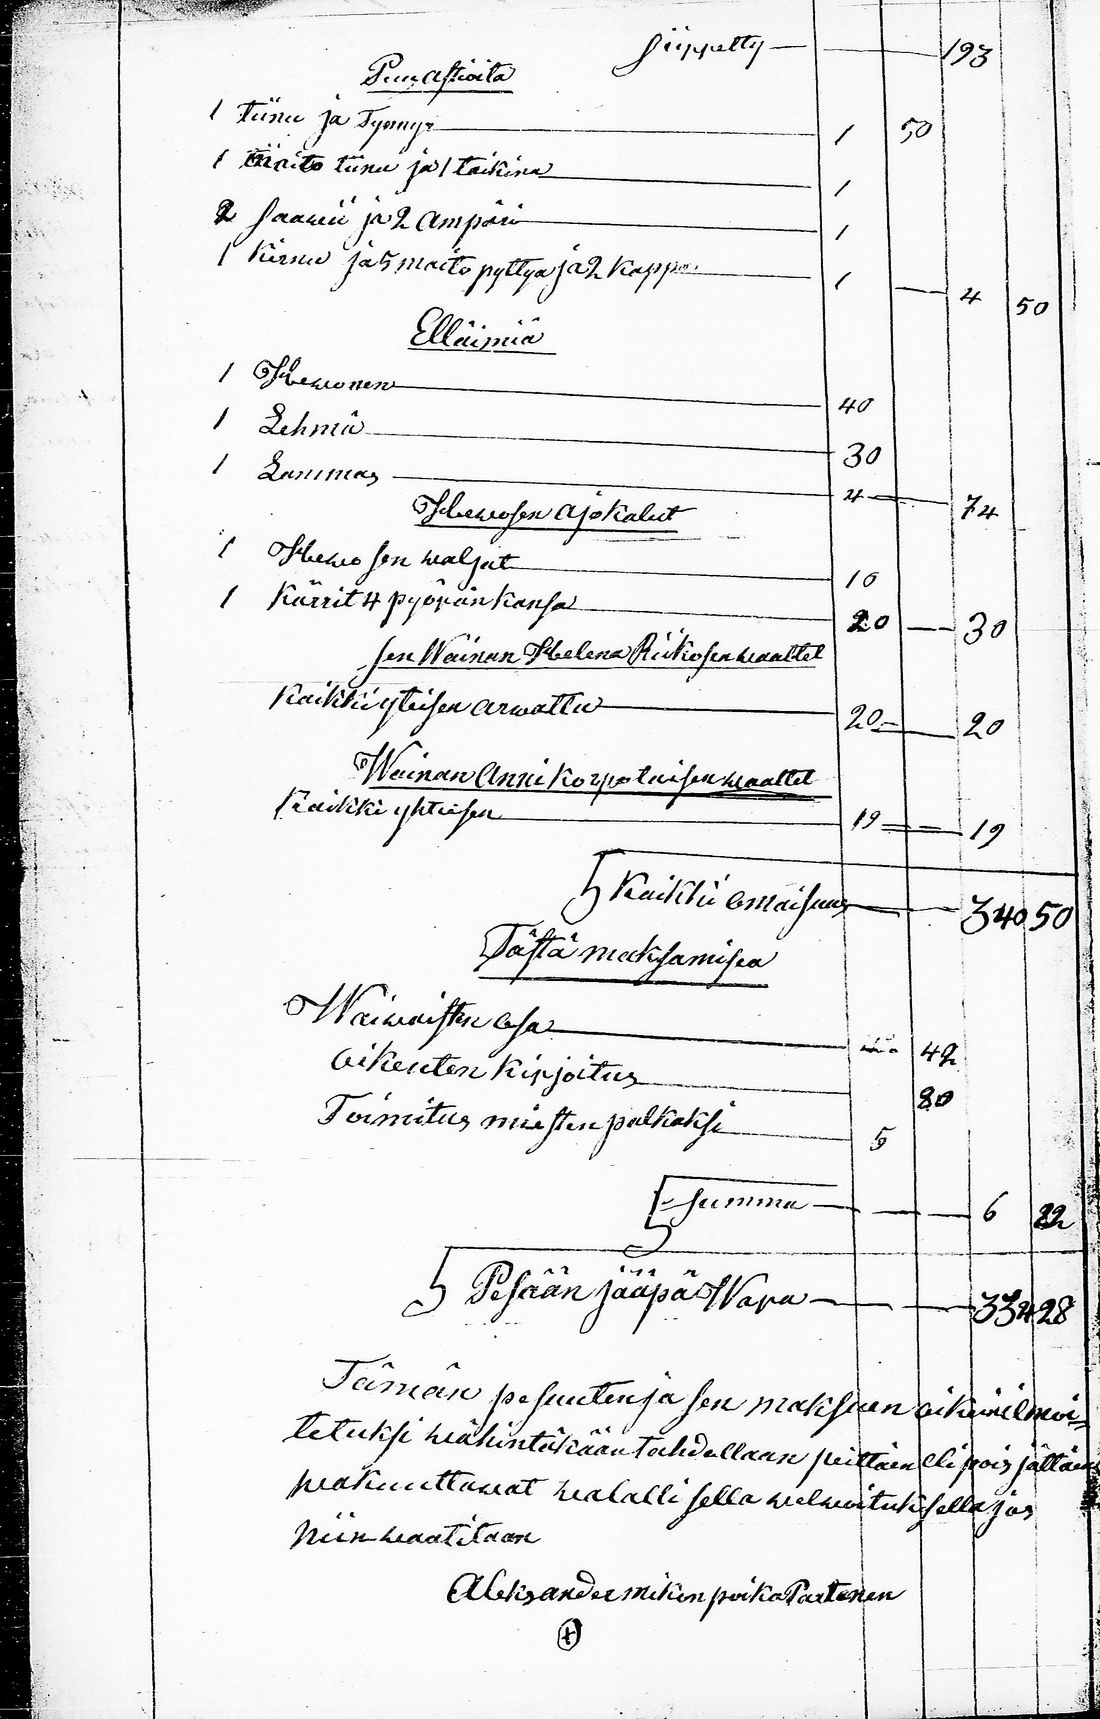 Siippetty — 193
Puuastioita
1 tiinu ja Tynnyr 1 50
1 Maito tiinu ja 1 taikina 1
2 Saawii ja 2 ämpäri 1
1 Kirnu ja 5 maito pyttyä ja 2 Kappa 1 — 4 50
Elläimiä
1 Hewonen 40
1 Lehmä 30
1 Lammas 4 — 74
Hewosen ajokalut
1 Hewosen waljat 10
1 Kärrit 4 pyörän kansa 20 — 30
sen Wainan Helena Riikosen waattet
Kaikki yteisen arwattu 20 — 20
Wainan Anni Korpelaisen waattet
Kaikki yhteisen 19 — 19
Kaikki Omaisuus — 340 50
Tästä maksamisea
Waiwaisten Osa 42
Oikeuten Kirjoitus 80
Toimitus miesten palkaksi 5
Summa — 6 22
Pesään jääpä Wara — 334 28
Tämän pesuuten ja sen maksuen oikein ilmoi=
tetuksi wähintäkään tahdollaan peittäen eli pois jättäen
wakuuttawat walallisella welwoituksella jos
niin waatitaan
Aleksander mikin poika Partanen
(+)